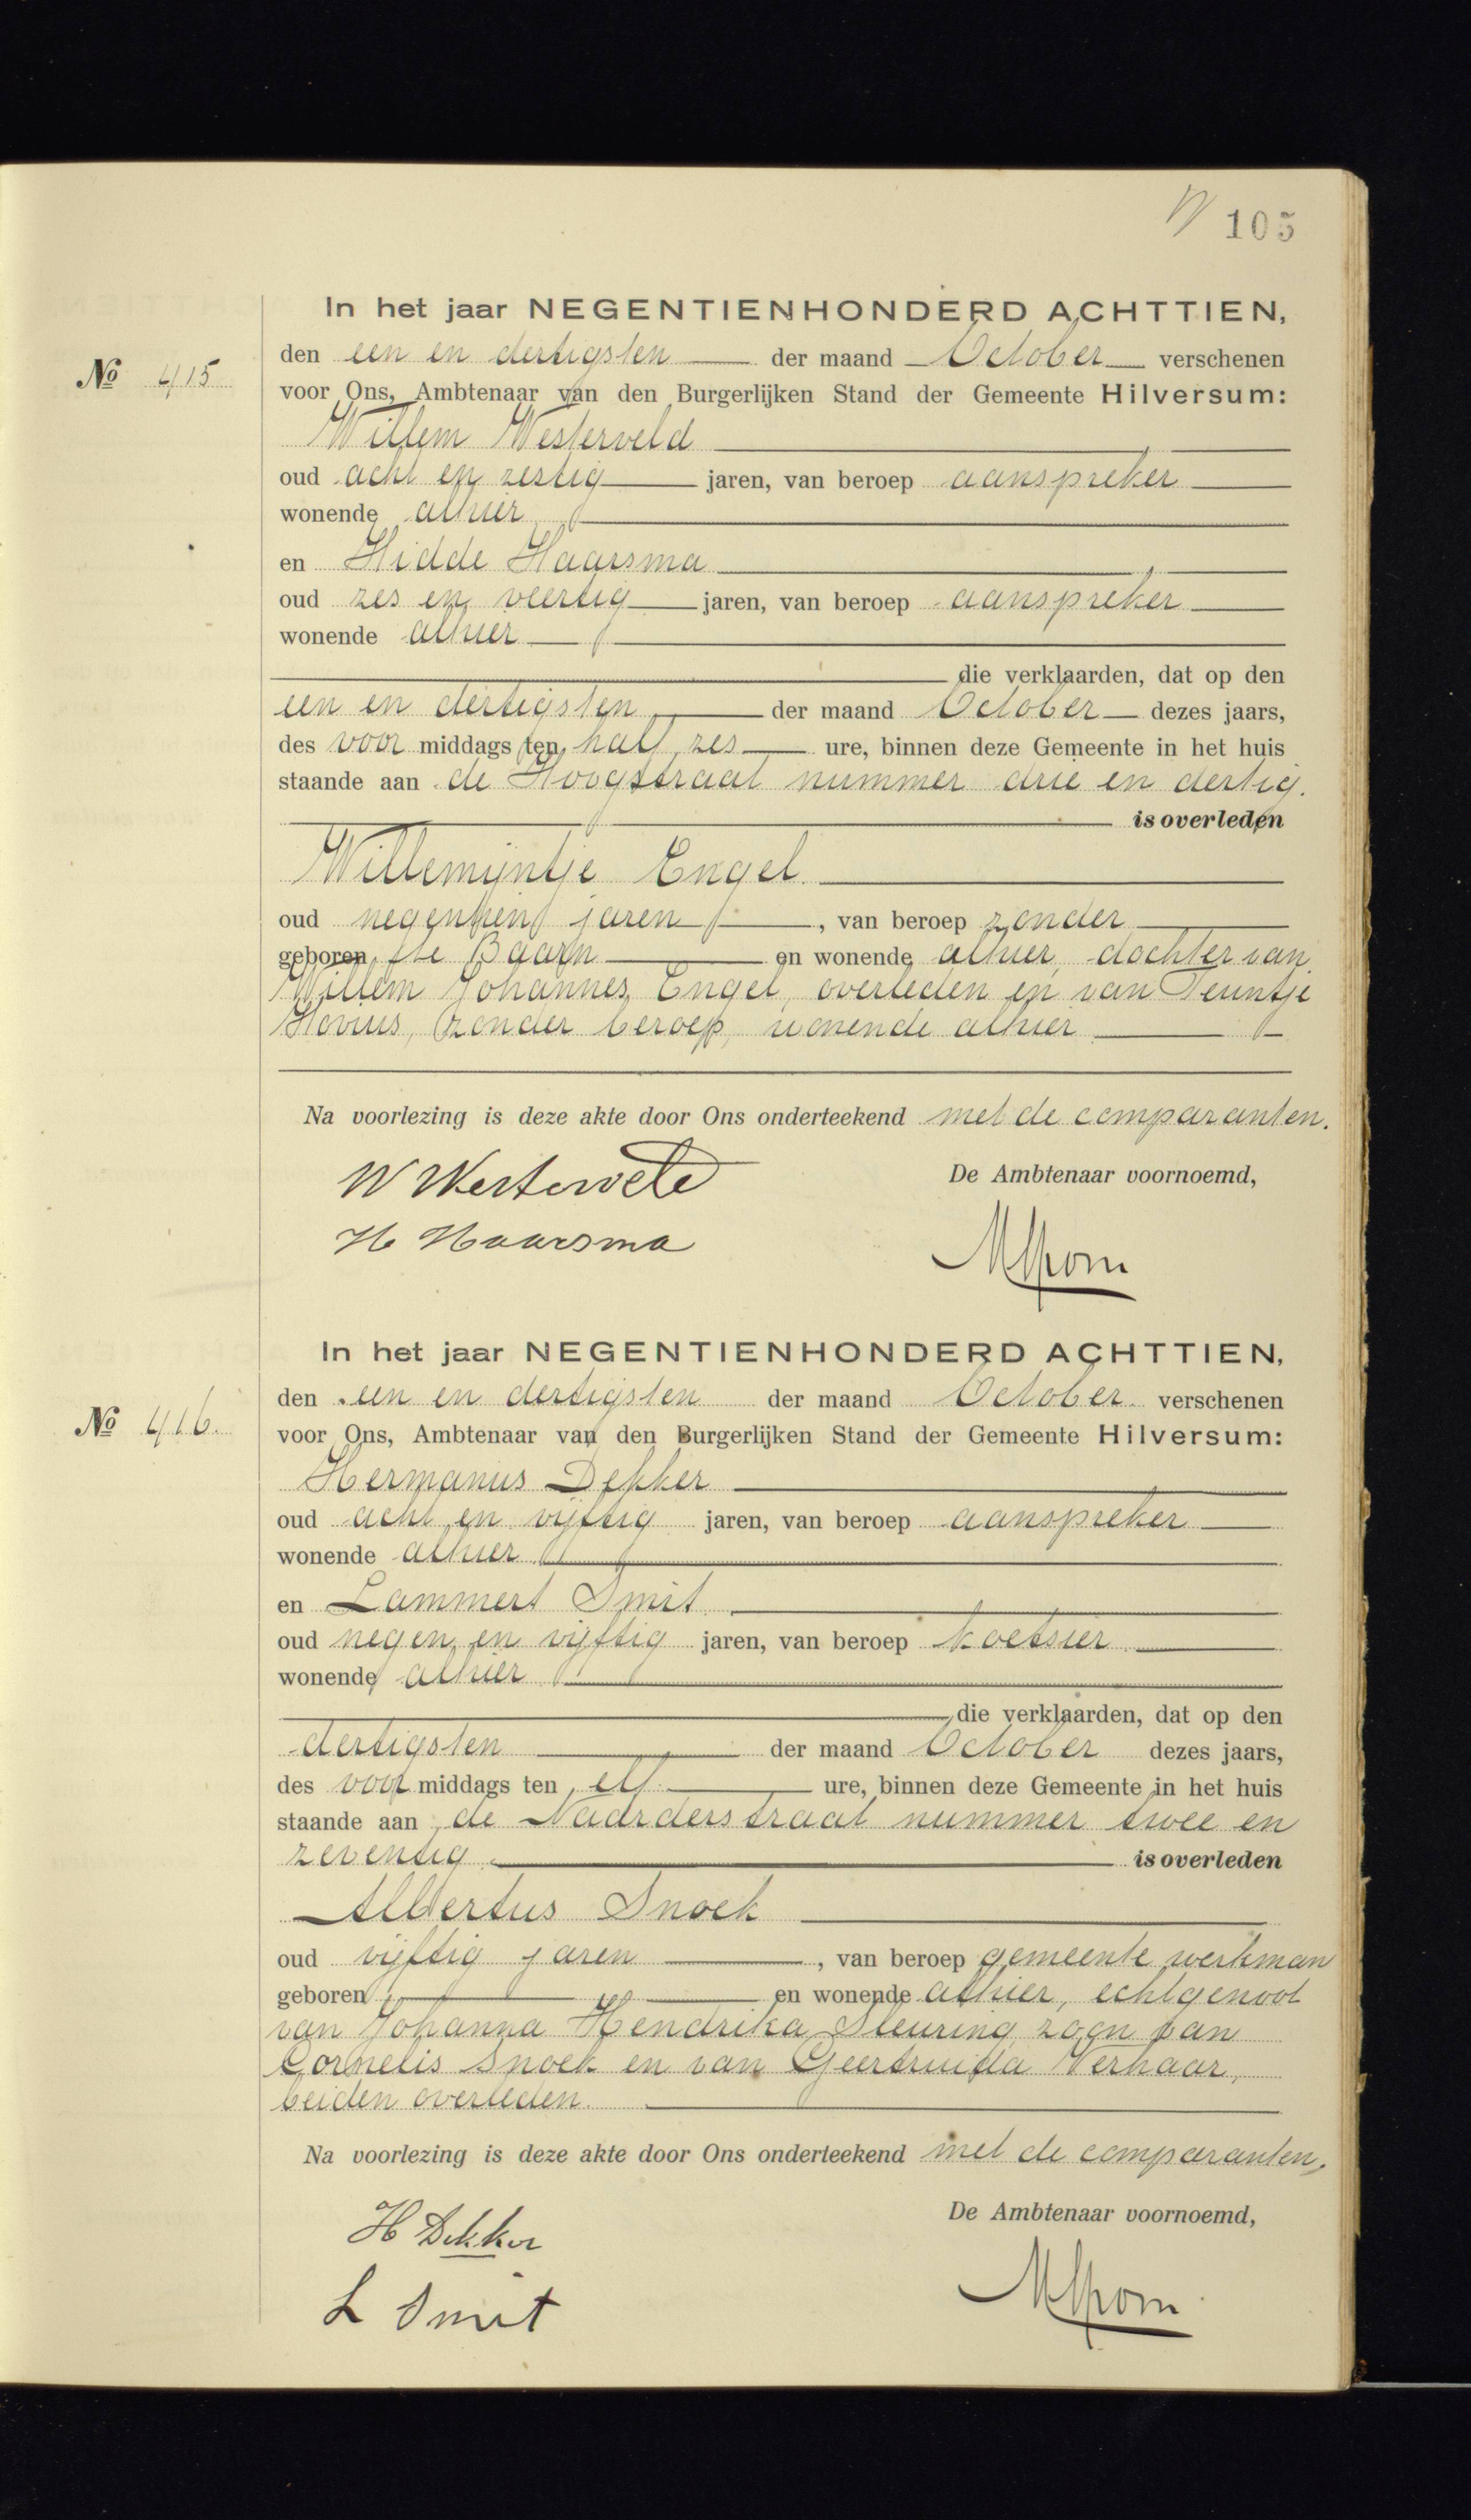 105
In het jaar NEGENTIENHONDERD ACHTTIEN,
den een en dertigsten der maand October verschenen
No 415
voor Ons, Ambtenaar van den Burgerlijken Stand der Gemeente Hilversum:
Willem Westerveld
oud acht en zestig jaren, van beroep aanspreker
wonende alhier
en Hidde Haarsma
oud zes en veertig jaren, van beroep aanspreker
wonende alhier
die verklaarden, dat op den
een en dertigsten der maand October dezes jaars,
des voor middags ten half zes ure, binnen deze Gemeente in het huis
staande aan de Hoogstraat nummer drie en dertig.
is overleden
Willemijntje Engel
oud negentien jaren, van beroep zonder
geboren te Baarn en wonende alhier, dochter van
Willem Johannes Engel, overleden en van Teuntje
Hovius, zonder beroep, wonende alhier
Na voorlezing is deze akte door Ons onderteekend met de comparanten.
De Ambtenaar voornoemd,
W Westerveld
H Haarsma
In het jaar NEGENTIENHONDERD ACHTTIEN,
den een en dertigsten der maand October verschenen
No 416.
voor Ons, Ambtenaar van den Burgerlijken Stand der Gemeente Hilversum:
Hermanus Dekker
oud acht en vijftig jaren, van beroep aanspreker
wonende alhier
en Lammert Smit
oud negen en vijftig jaren, van beroep koetsier
wonende alhier
die verklaarden, dat op den
dertigsten der maand October dezes jaars,
des voor middags ten elf ure, binnen deze Gemeente in het huis
staande aan de Naarderstraat nummer twee en
zeventig is overleden
Albertus Snoek
oud vijftig jaren, van beroep gemeente werkman
geboren en wonende alhier, echtgenoot
van Johanna Hendrika Sleuring zoon van
Cornelis Snoek en van Geertruida Verhaar,
beiden overleden.
Na voorlezing is deze akte door Ons onderteekend met de comparanten.
De Ambtenaar voornoemd,
H Dekker
L Smit